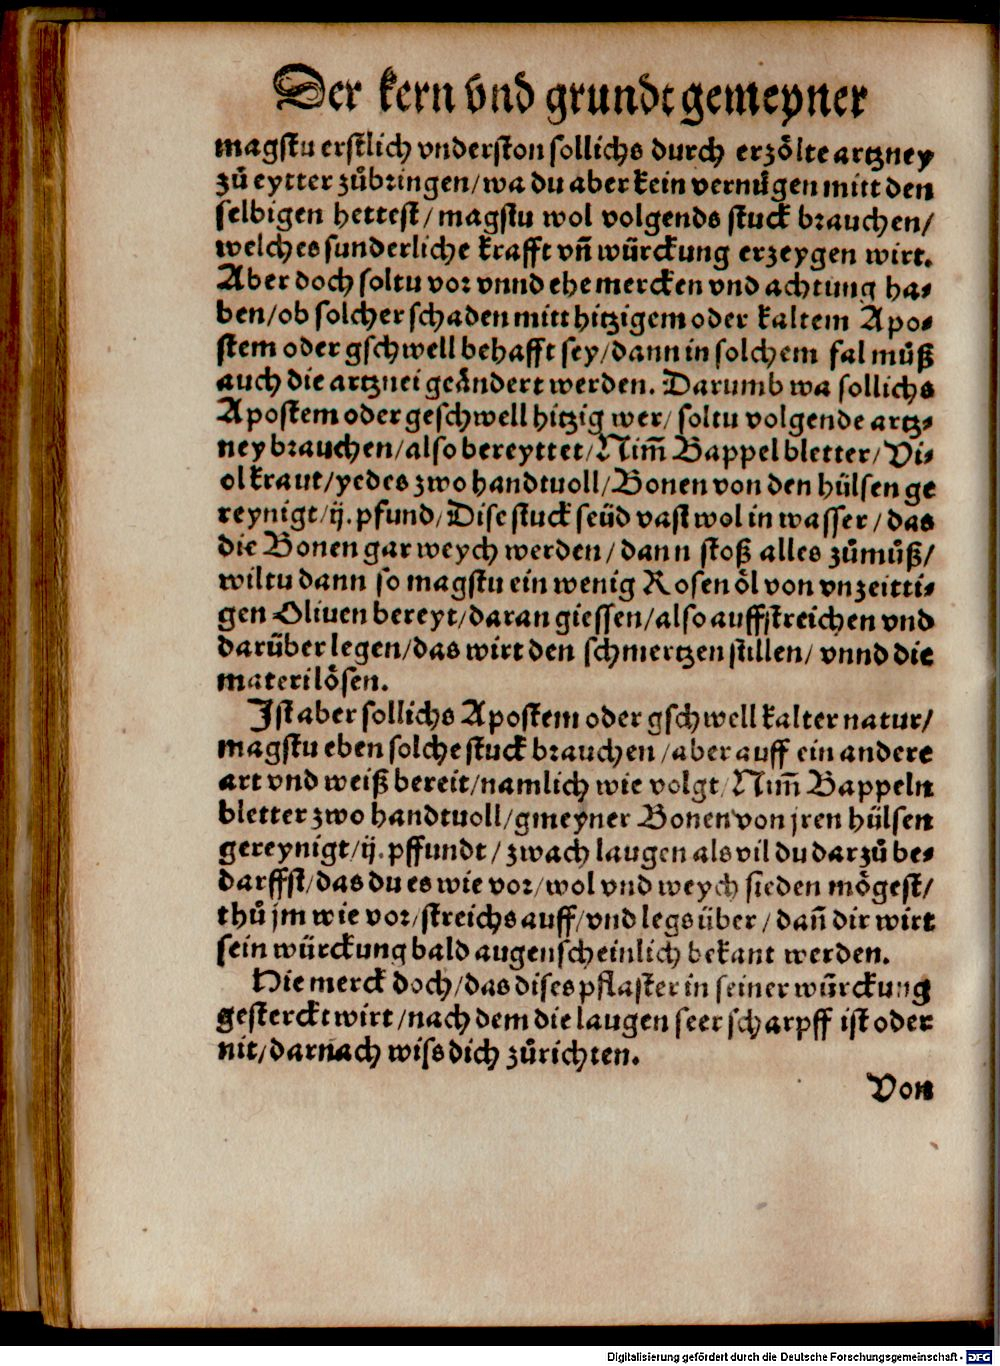 Der kern vnd grundt gemeyner
magstu erstlich vnderston sollichs durch erzoͤlte artzney
zuͦ eytter zuͦbringen/wa du aber kein vernuͤgen mitt den
selbigen hettest/magstu wol volgends stuck brauchen/
welches sunderliche krafft vñ wuͤrckung erzeygen wirt.
Aber doch soltu vor vnnd ehe mercken vnd achtung ha⸗
ben/ob solcher schaden mitt hitzigem oder kaltem Apo⸗
stem oder gschwell behafft sey/dann in solchem fal muͦß
auch die artznei geaͤndert werden. Darumb wa sollichs
Apostem oder geschwell hitzig wer/soltu volgende artz⸗
ney brauchen/also bereyttet/Nim̃ Bappel bletter/Vi⸗
ol kraut/yedes zwo handtuoll/Bonen von den huͤlsen ge
reynigt/ij.pfund/Dise stuck seüd vast wol in wasser/das
die Bonen gar weych werden/dann stoß alles zuͦ muͦß/
wiltu dann so magstu ein wenig Rosen oͤl von vnzeitti⸗
gen Oliuen bereyt/daran giessen/also auffstreichen vnd
daruͤber legen/das wirt den schmertzen stillen/vnnd die
materi loͤsen.
Ist aber sollichs Apostem oder gschwell kalter natur/
magstu eben solche stuck brauchen/aber auff ein andere
art vnd weiß bereit/namlich wie volgt/Nim̃ Bappeln
bletter zwo handtuoll/gmeyner Bonen von jren huͤlsen
gereynigt/ij.pffundt/zwach laugen als vil du darzuͦ be⸗
darffst/das du es wie vor/wol vnd weych sieden moͤgest/
thuͦ jm wie vor/streichs auff/vnd legs uͤber/dañ dir wirt
sein wuͤrckung bald augenscheinlich bekant werden.
Hie merck doch/das dises pflaster in seiner wuͤrckung
gesterckt wirt/nach dem die laugen seer scharpff ist oder
nit/darnach wiss dich zuͦrichten.
Von
Digitalisierung gefördert durch die Deutsche Forschungsgemeinschaft - DFG